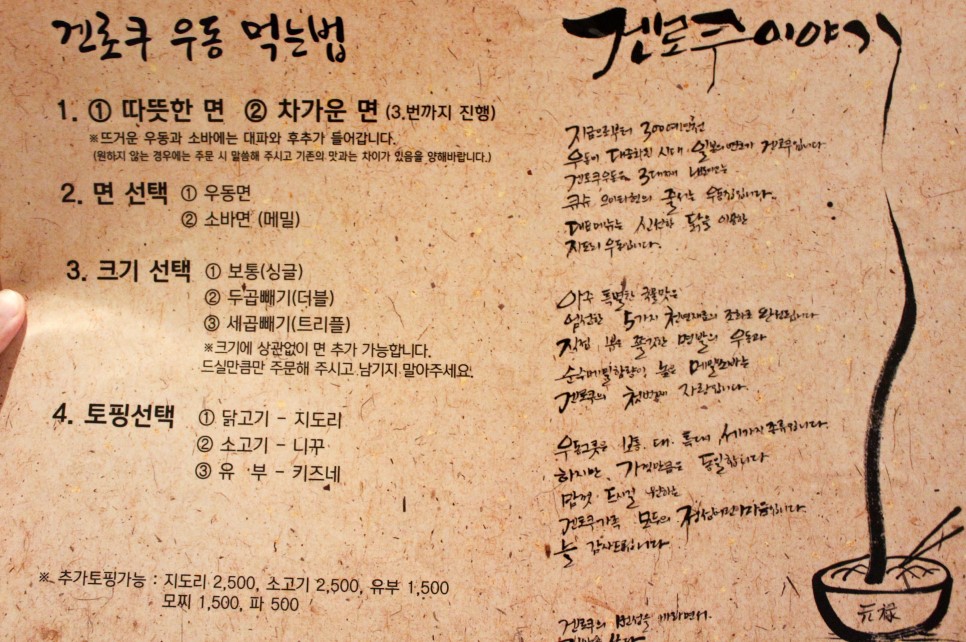 겐로쿠 우동 먹는법
1. ① 따뜻한 면 ② 차가운 면 (3.번까지 진행)
※뜨거운 우동과 소바에는 대파와 후추가 들어갑니다.
(원하지 않는 경우에는 주문 시 말씀해 주시고 기존의 맛과는 차이가 있음을 양해바랍니다.)
2. 면 선택 ① 우동면
② 소바면 (메밀)
3. 크기 선택 ① 보통(싱글)
② 두곱빼기(더블)
③ 세곱빼기(트리플)
※크기에 상관없이 면 추가 가능합니다.
드실만큼만 주문해 주시고 남기지 말아주세요.
4. 토핑선택 ① 닭고기 - 지도리
② 소고기 - 니꾸
③ 유 부 - 키즈네
※ 추가토핑가능 : 지도리 2,500, 소고기 2,500, 유부 1,500
모찌 1,500, 파 500
겐로쿠이야기
지금으로부터 300여년전
우동이 대중화된 시대 일본의 연호가 겐로쿠입니다.
겐로쿠우동은 3대째 내려오는
큐슈 줄서는 우동집입니다.
대표메뉴는 신선한 닭을 이용한
지도리 우동입니다.
아주 특별한 국물맛은
엄선한 5가지 천연재료의 조화로 완성됩니다
직접 뽑은 쫄깃한 면발의 우동과
순수메밀함량이 높은 메밀소바는
겐로쿠의 첫번째 자랑입니다.
우동그릇은 보통, 대, 특대 세가지 종류입니다.
하지만, 가격만큼은 동일합니다
맘껏 드시길 원하는
겐로쿠가족 모두의 정성어린마음입니다.
늘 감사드립니다
겐로쿠의 면성을
元禄